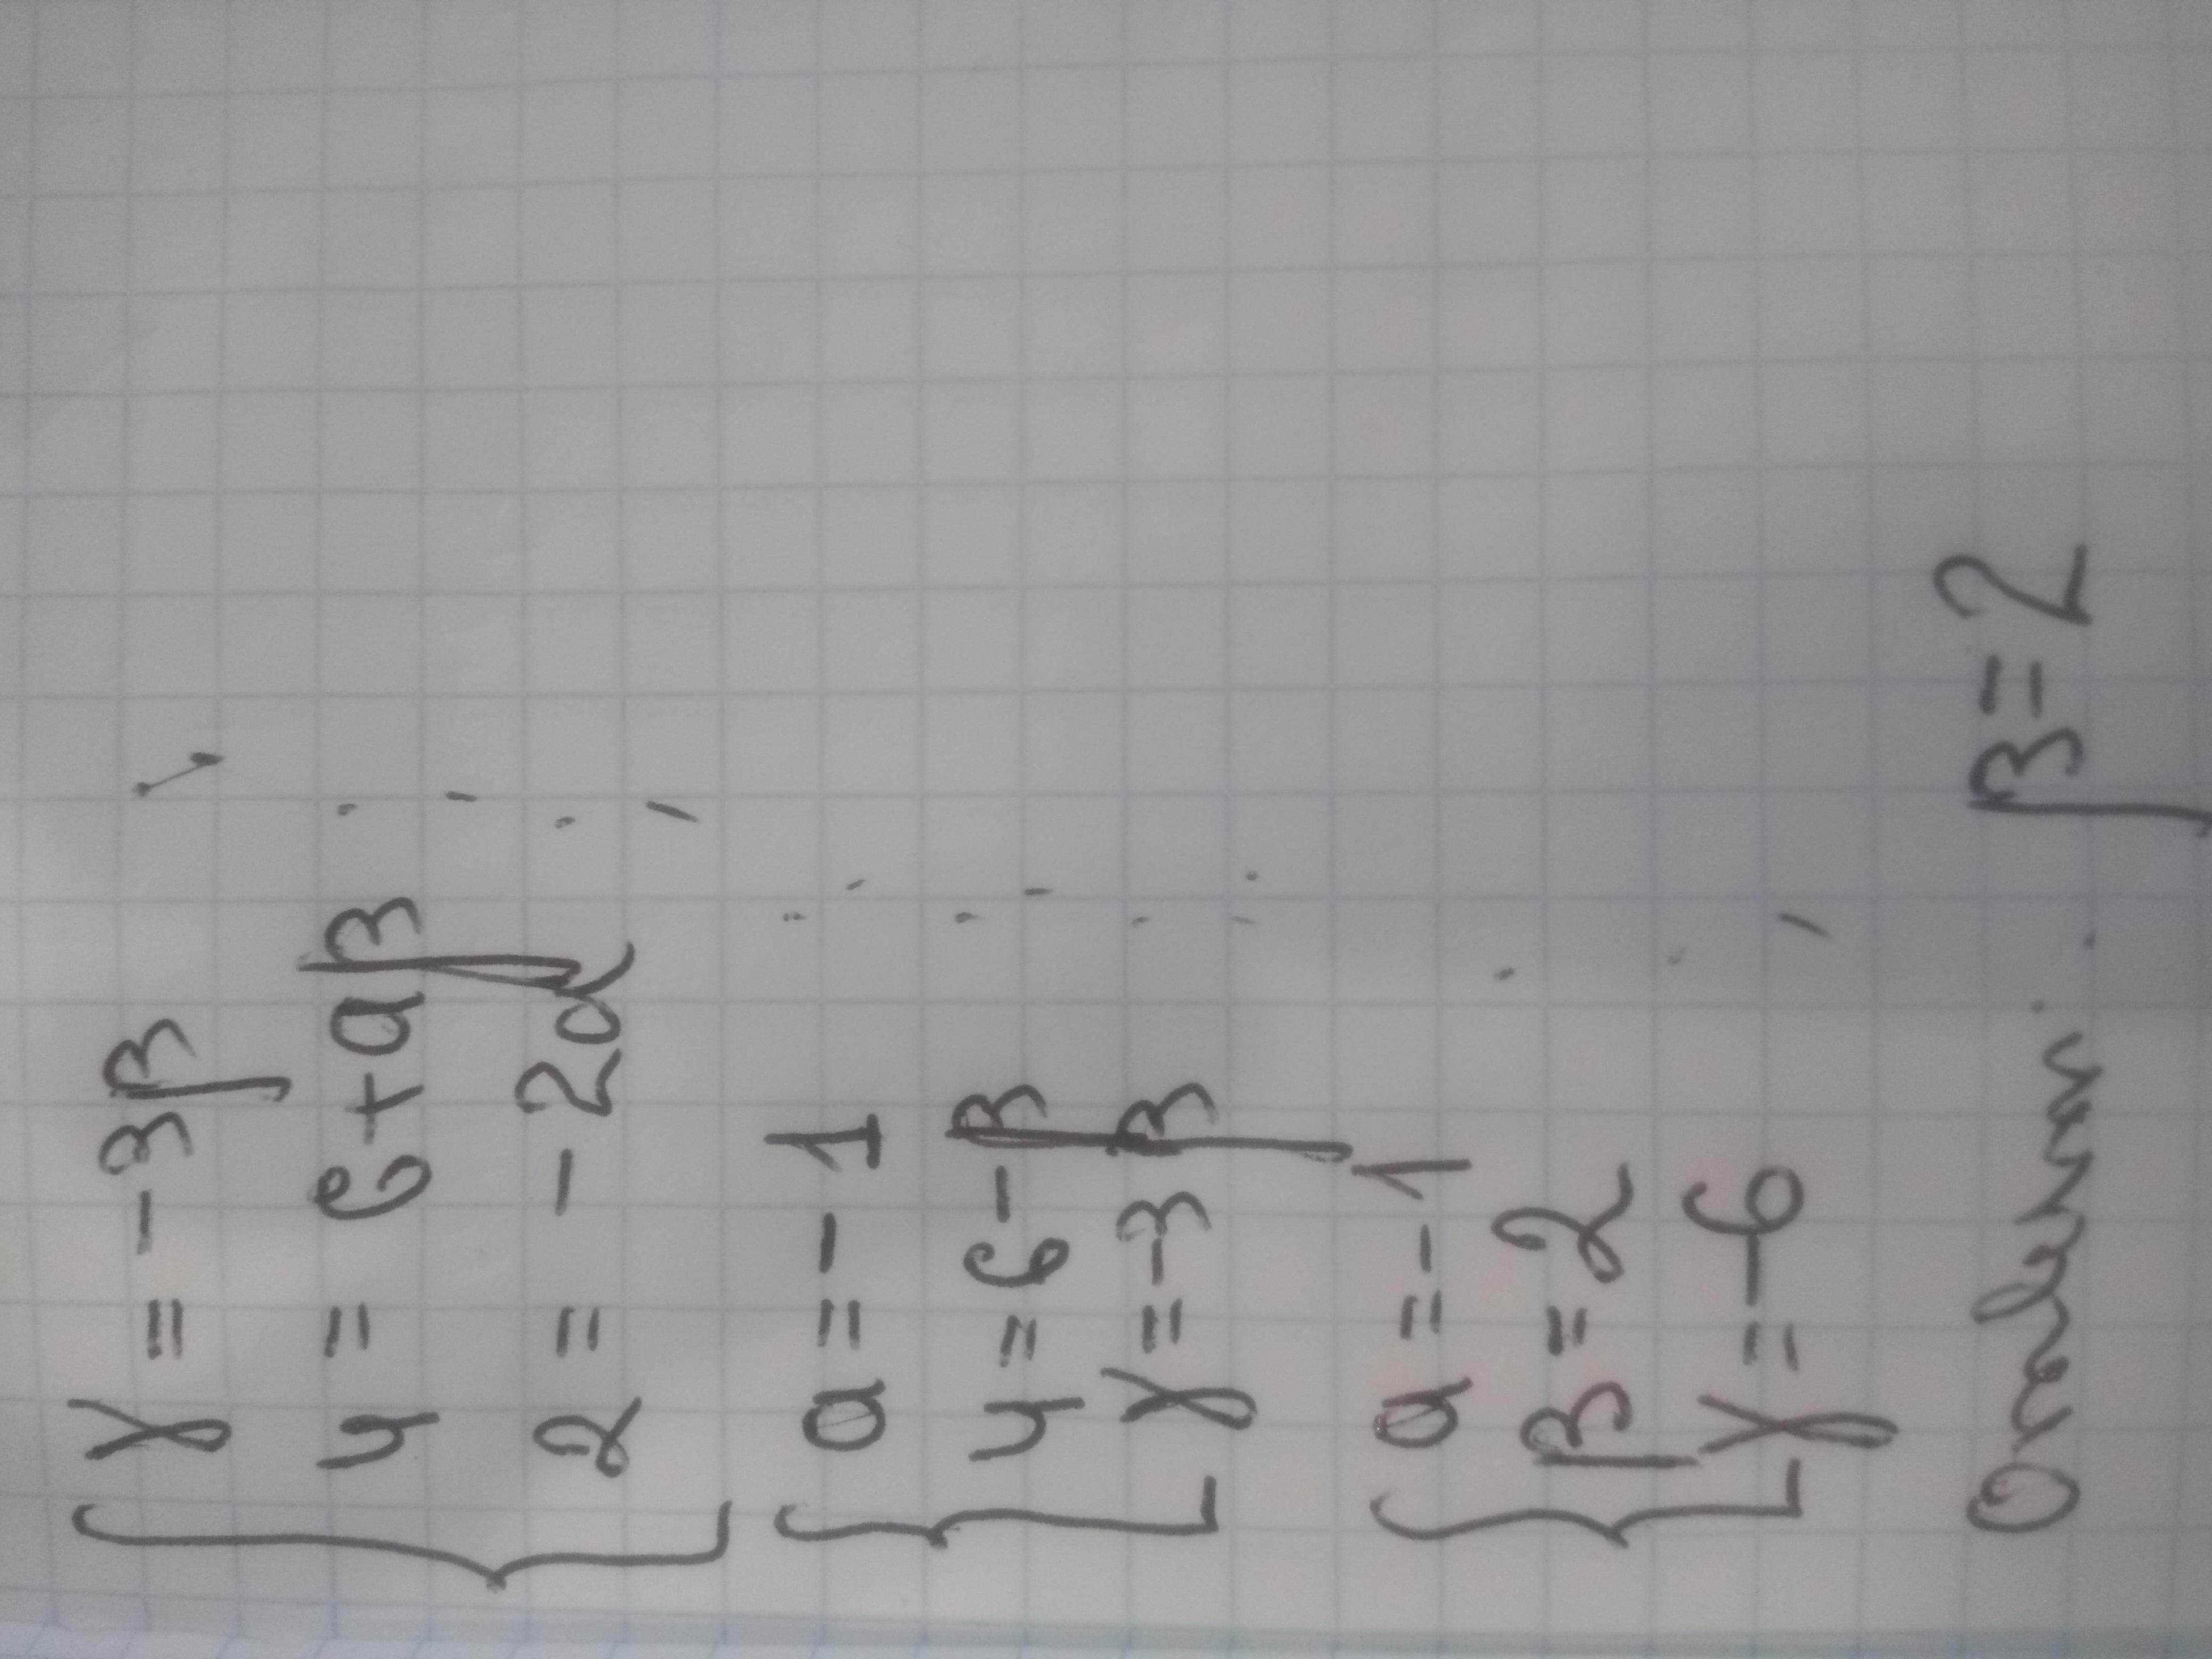 γ = -3β;
4 = 6 + αβ;
2 = -2α;
α = -1;
4 = 6 - β;
γ = -3β;
α = -1
β = 2
γ = -6;
Ответ: β = 2